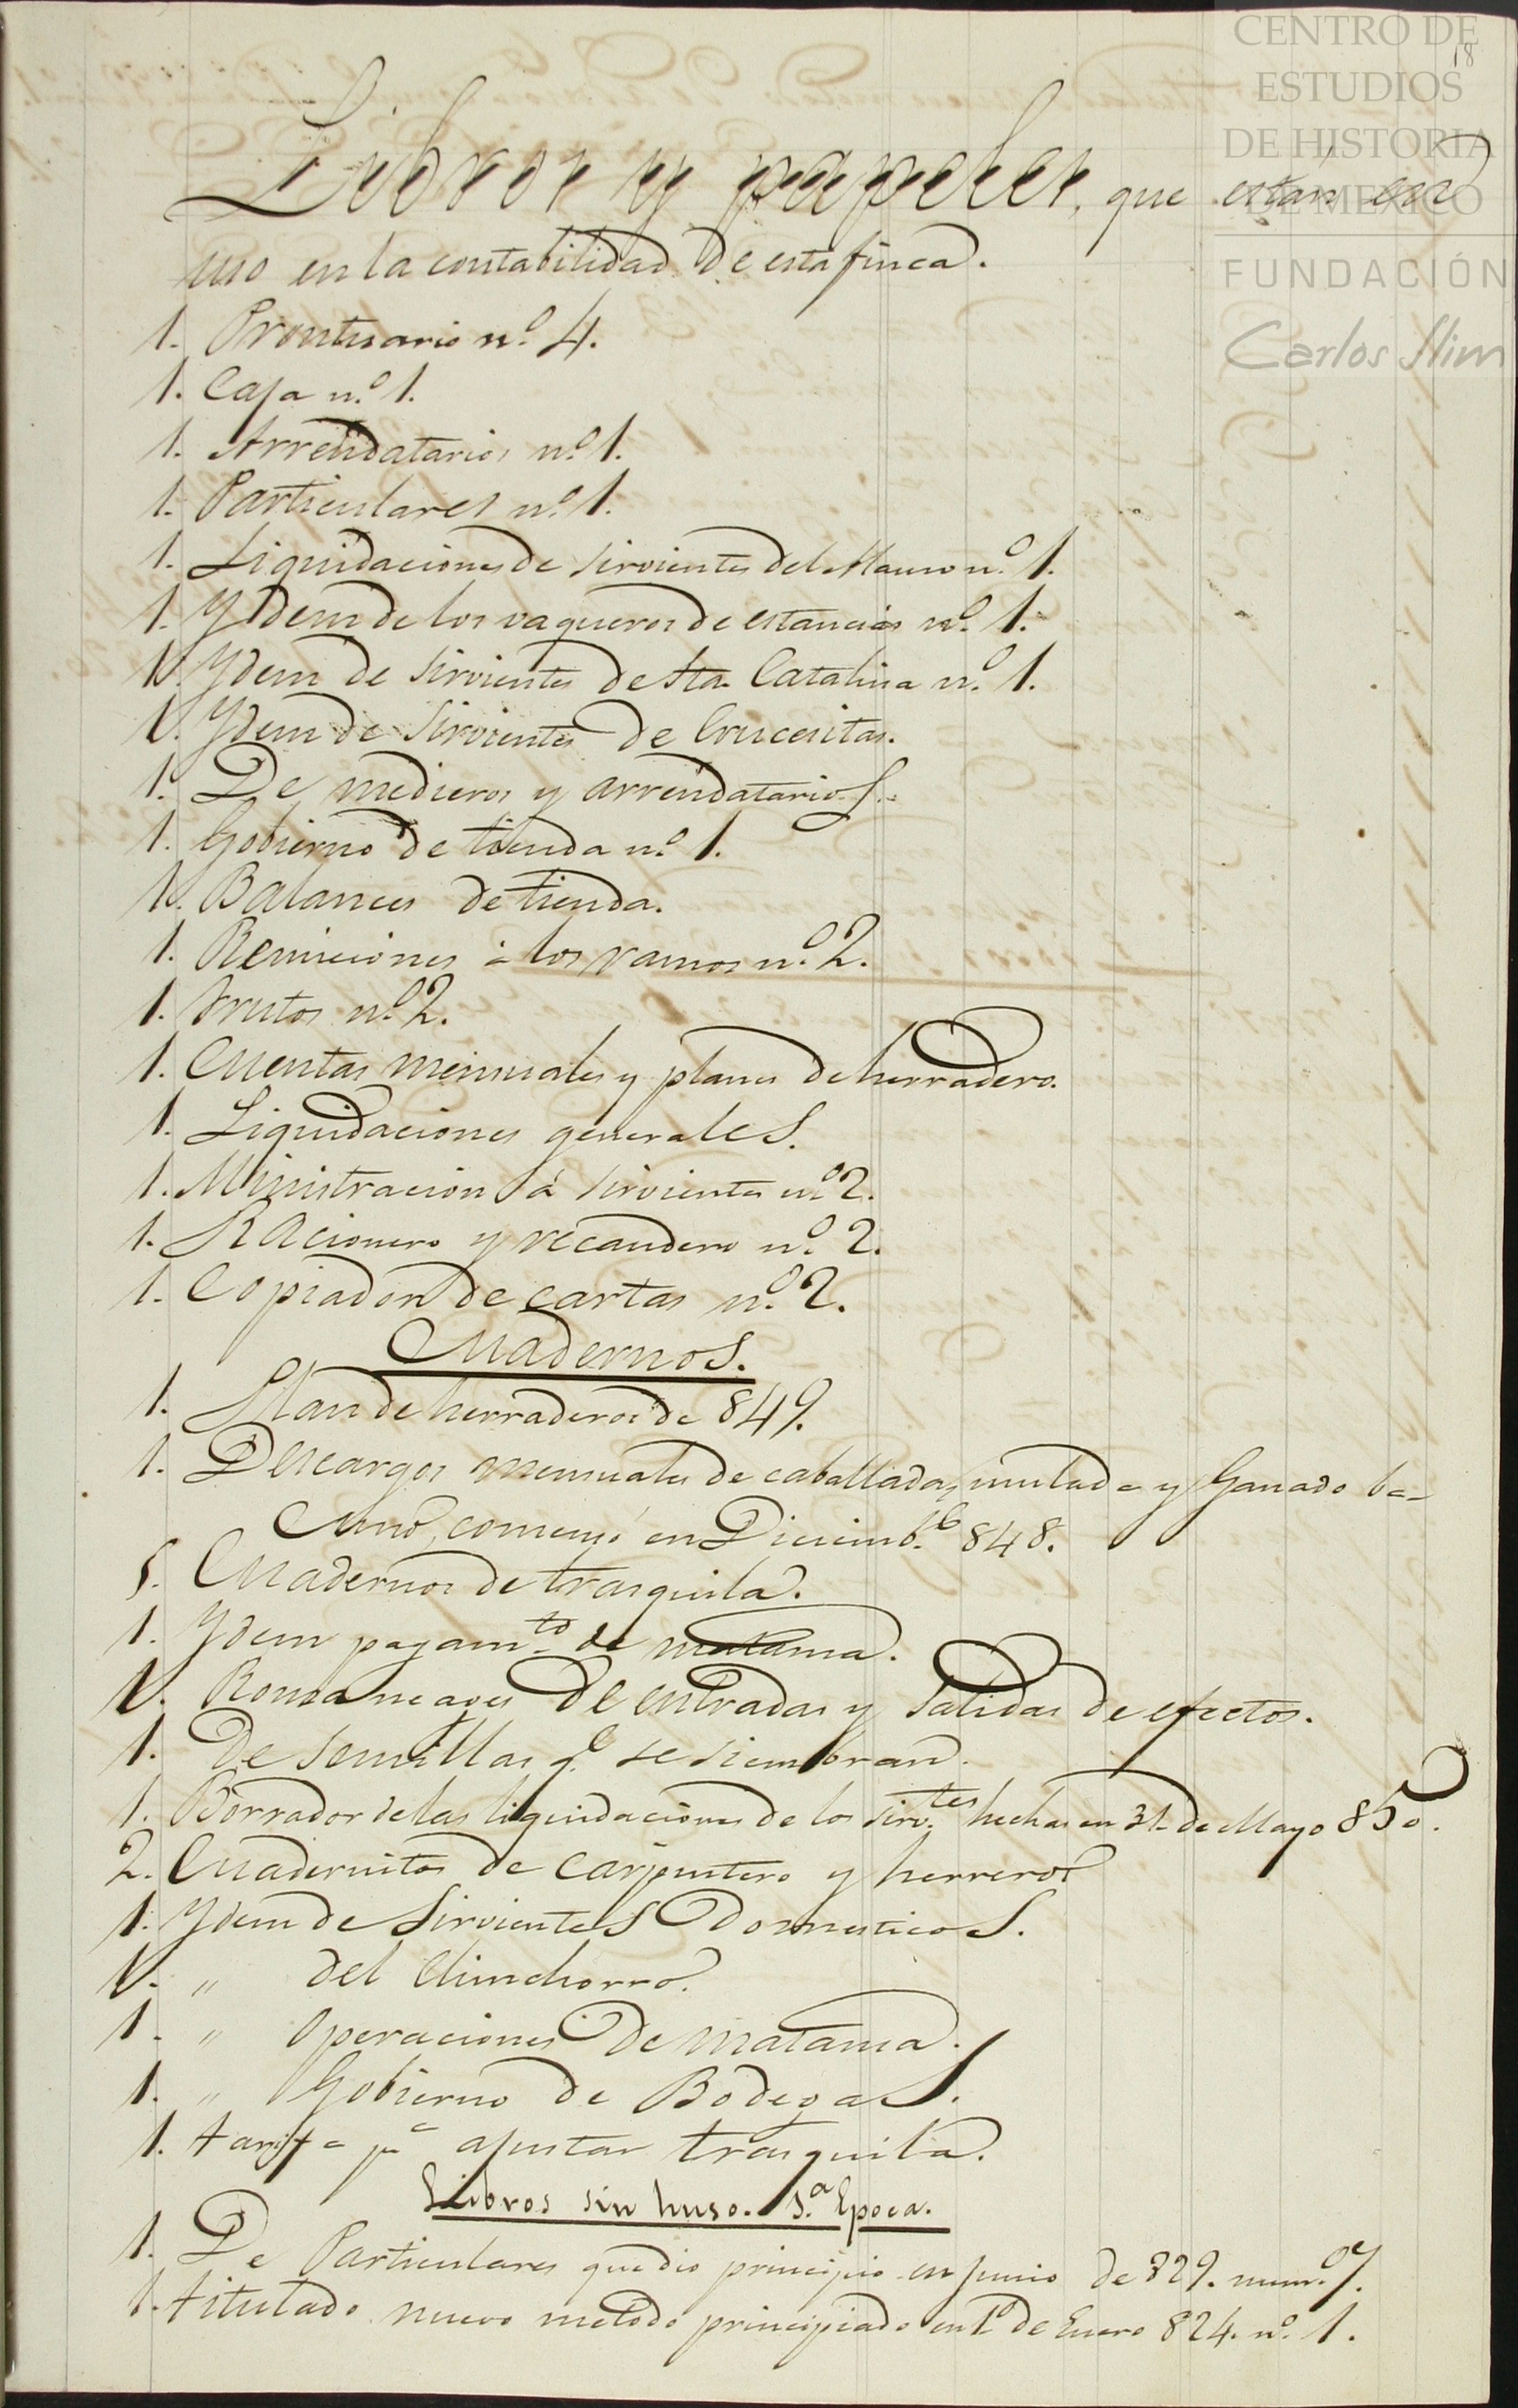 CENTRO DE
ESTUDIOS
DE HISTORIA
DE MÉXICO
FUNDACIÓN
Carlos Slim
18
Libros y papeles, que están en
uso en la contabilidad de esta finca.
1. Prontuario n.º 4.
1. Caja n.º 1.
1. Arrendatarios n.º 1.
1. Particulares n.º 1.
1. Liquidaciones de sirvientes del Mauso n.º 1.
1. Ydem de los vaqueros de estancias n.º 1.
1. Ydem de sirvientes de Sta. Catalina n.º 1.
1. Ydem de sirvientes de Crucesitas.
1. De medieros y arrendatarios.
1. Gobierno de tienda n.º 1.
1. Balances de tienda.
1. Remiciones á los ramos n.º 2.
1. Frutos n.º 2.
1. Cuentas mensuales y planes de herradero.
1. Liquidaciones generales.
1. Ministracion á sirvientes n.º 2.
1. Racionero y recaudero n.º 2.
1. Copiador de cartas n.º 2.
Cuadernos.
1. Plan de herraderos de 849.
1. Descargos mensuales de caballada, mulada y Ganado ba-
cuno, comensó en Diciemb.e 848.
5. Cuadernos de trasquila.
1. Ydem pagam.to de matansa.
1. Romaneages de entradas y salidas de efectos.
1. De semillas q.e se siembran.
1. Borrador de las liquidaciones de los sirv.tes hechas en 31 de Mayo 850.
2. Cuadernitos de carpintero y herreros
1. Ydem de Sirvientes Domesticos.
1. " del Chinchorro.
1. " Operaciones de matansa.
1. " Gobierno de Bodegas.
1. tarifa p.a ajustar trasquila.
Libros sin huso. 1.a Epoca.
1. De Particulares que dio principio en Junio de 829. num.º 7.
1. titulado nuevo metodo principiado en 1.º de Enero 824. n.º 1.